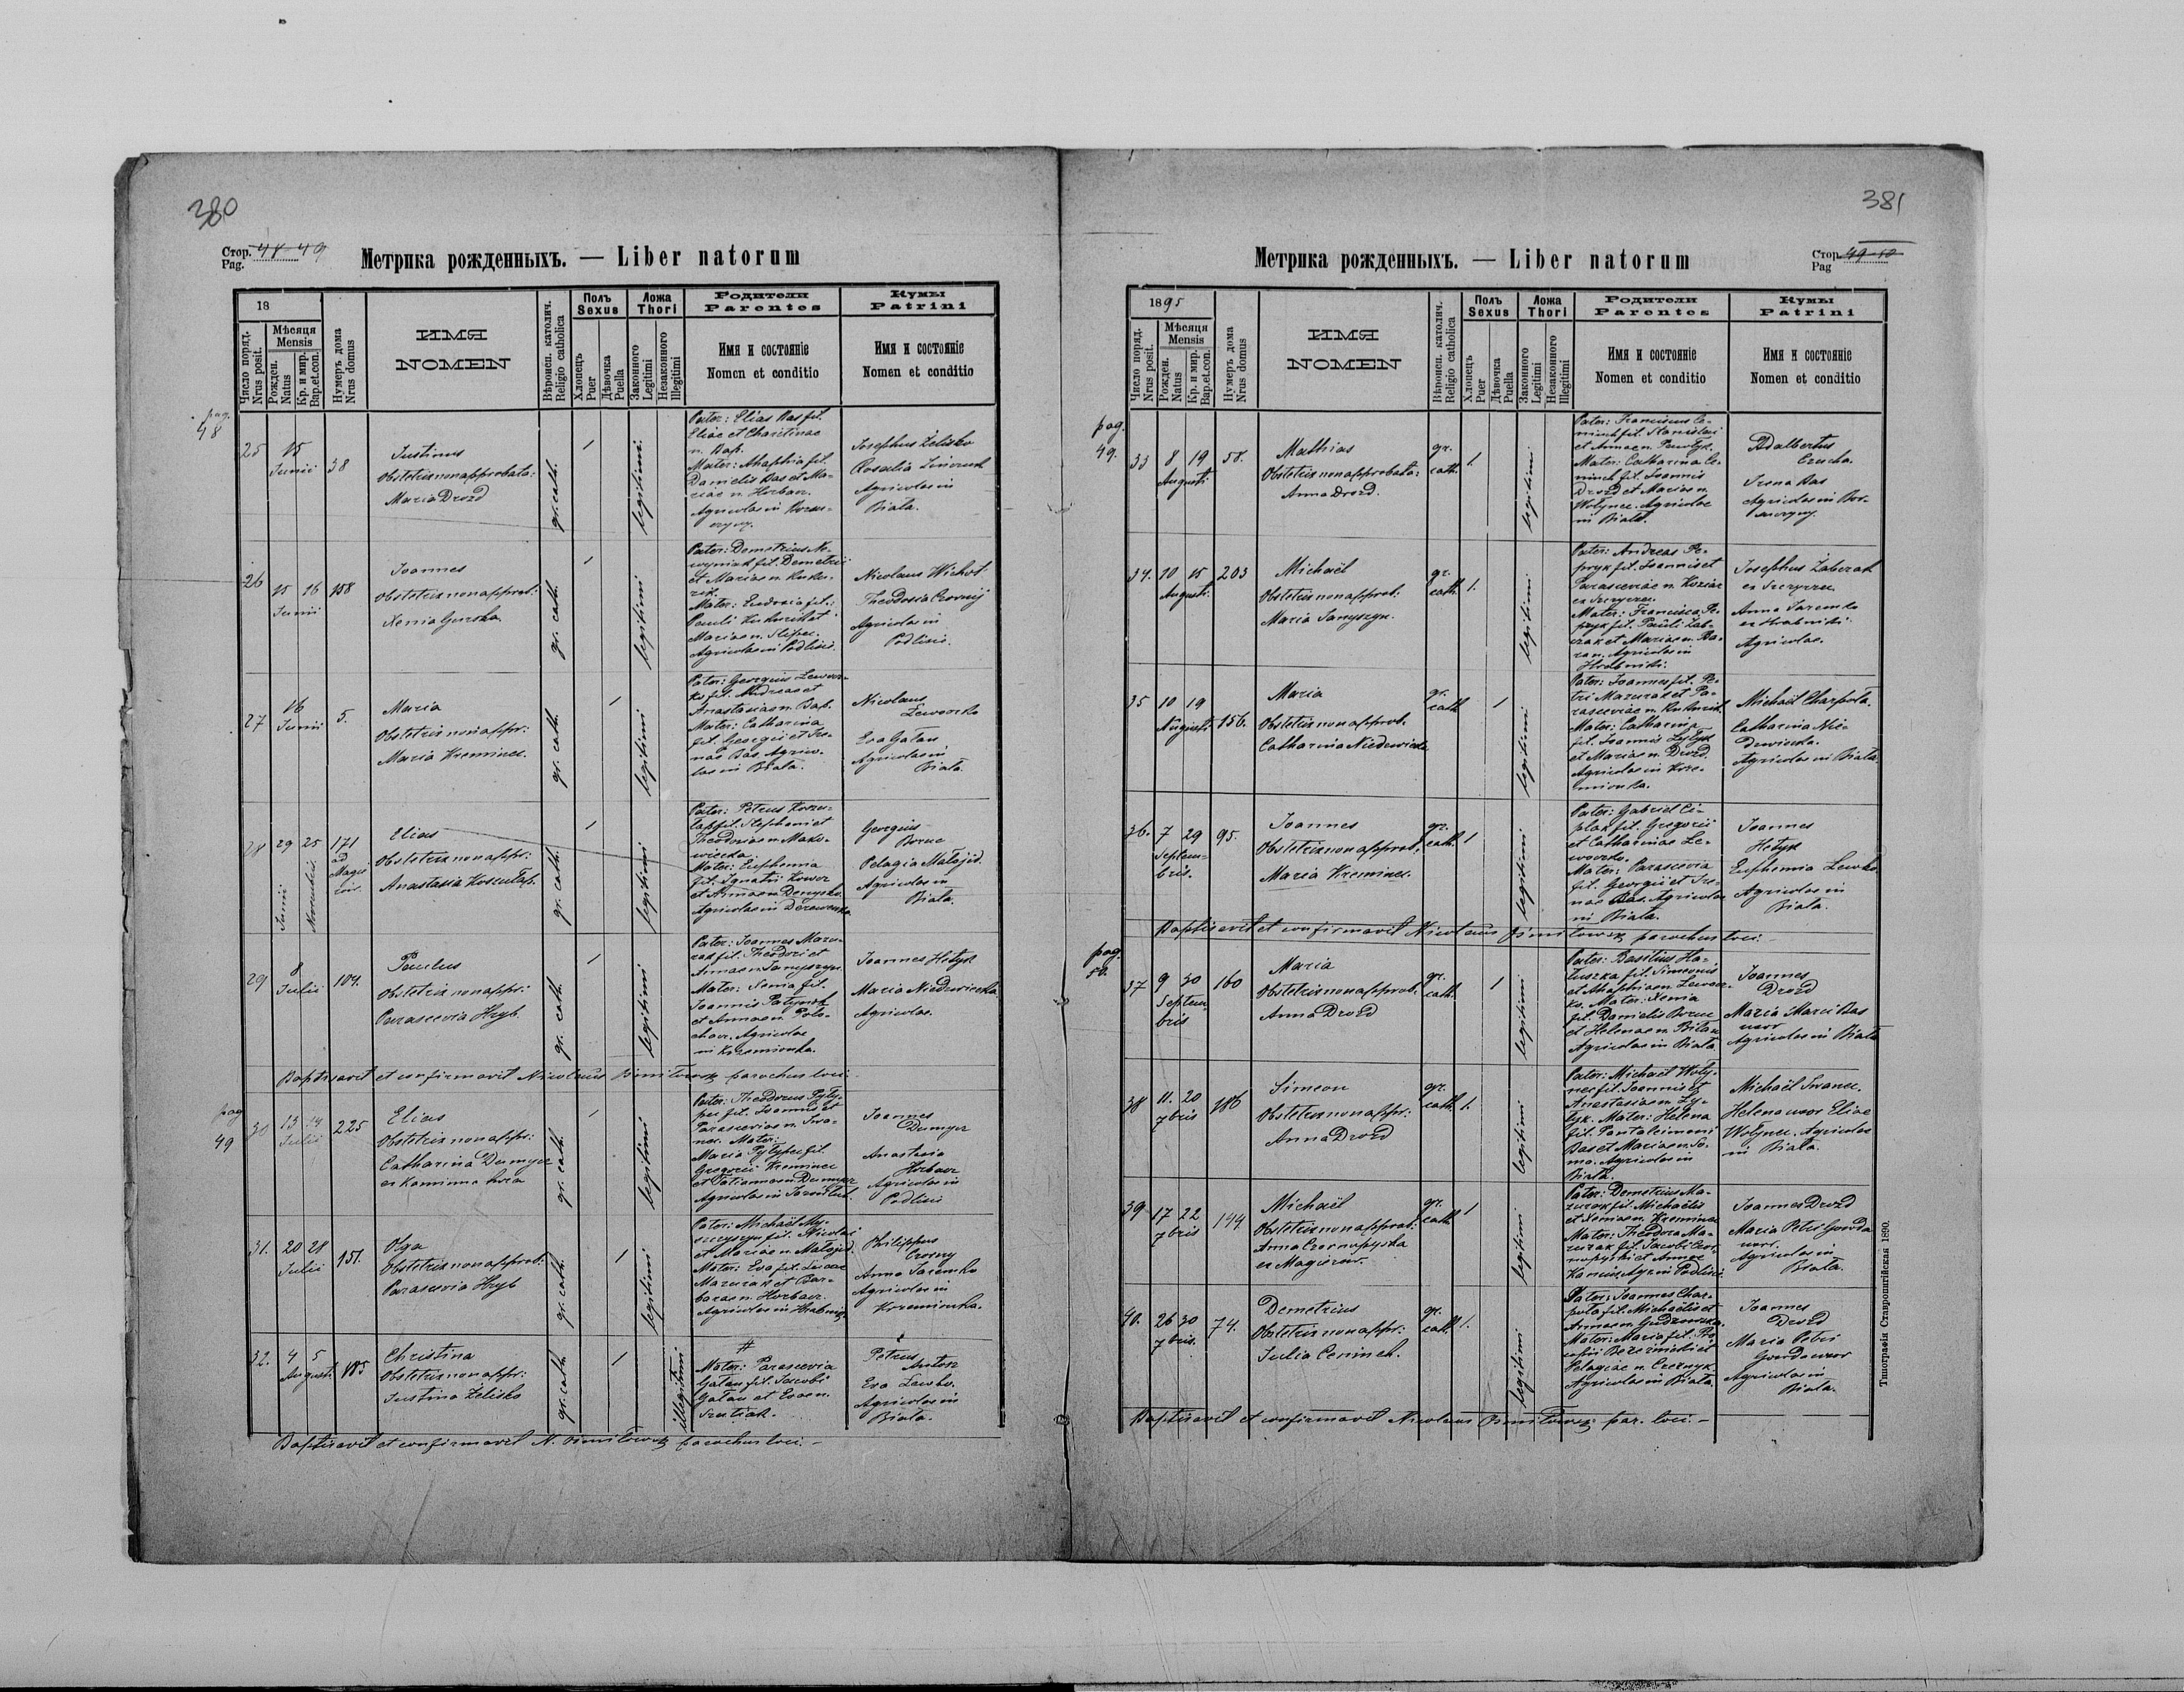 380
Стор. 48-49
Pag.
Метрика рожденныхъ. — Liber natorum
18
Число поряд.
Nrus posit.
Мѣсяця
Mensis
Рожден.
Natus
Кр. и мир.
Bap. et con.
Нумеръ дома
Nrus domus
ИМЯ
NOMEN
Вѣроисп. католич.
Religio catholica
Полъ
Sexus
Хлопецъ
Puer
Дѣвочка
Puella
Ложа
Thori
Законного
Legitimi
Незаконного
Illegitimi
Родители
Parentes
Имя и состояніе
Nomen et conditio
Кумы
Patrini
Имя и состояніе
Nomen et conditio
pag.
48
25
15
Junii
38
Justinus
Obstetrix non approbata:
Maria Drozd
gr. cath.
1
legitimi
Pater: Elias Bas fil.
Eliae et Charitinae
n. Bap.
Mater: Ahaphia fil.
Danielis Bas et Ma-
riae n. Horban.
Agricolae in
Josephus Zelisko
Rosalia
Agricolae in
Biała.
26
15 16
Junii
158
Joannes
Obstetrix non approb:
Xenia
gr. cath.
1
legitimi
Pater: Demetrius
fil. Demetrii
et Mariae n.
Mater: Eudoxia fil.
Pauli
Mariae n.
Agricolae in Podlisie.
Nicolaus
Theodosia Czornij
Agricolae in
Podlisie.
27
16
Junii
5.
Maria
Obstetrix non appr:
Maria Kreminec.
gr. cath.
1
legitimi
Pater: Georgius Lewoc-
ko fil. Andreae et
Anastasiae n. Bap.
Mater: Catharina
fil. Georgii et Ire-
nae Bas. Agrico-
lae in Biała.
Nicolaus
Lewocko
Eva Gałan
Agricolae in
Biała.
28
29 25
Junii
Novembris
171
ad
Magie
row.
Elias
Obstetrix non appr:
Anastasia Koszułap.
gr. cath.
1
legitimi
Pater: Petrus Koszu-
łap fil. Stephani et
Theodosiae n. Mako-
wiecka.
Mater: Euphemia
fil. Ignatii
et Annae n.
Agricolae in Derewenka.
Georgius
Borue
Pelagia Małojid.
Agricolae in
Biała.
29
8
Julii
104.
Paulus
Obstetrix non appr:
Parascevia Hryb.
gr. cath.
1
legitimi
Pater: Joannes Mazu-
rak fil. Theodori et
Annae n. Janyszyn.
Mater: Xenia fil.
Joannis
et Annae n.
Agricolae
in Krzemionka.
Joannes Hetyk
Maria Niedzwiecka
Agricolae.
Baptisavit et confirmavit Nicolaus parochus loci.
pag
49
30
13 14
Julii
225
Elias
Obstetrix non appr:
Catharina Dumycz
ex Kaminna hora
gr. cath.
1
legitimi
Pater: Theodorus Pyły-
pec fil. Joannis et
Parasceviae n. Iwa-
nec. Mater:
Maria Pyłypec fil.
Gregorii Kreminec
et Tatiannae n. Dumycz
Agricolae in
Joannes
Dumycz
Anastasia
Horbacz
Agricolae in
Podlisie
31.
20 28
Julii
151.
Olga
Obstetrix non approb:
Parascevia Hryb
gr. cath.
1
legitimi
Pater: Michaël My-
fil. Nicolai
et Mariae n. Małojid.
Mater: Eva fil. Lucae
Mazurak et Bar-
barae n. Horbacz.
Agricolae in
Philippus
Czorny
Anna Jaremko
Agricolae in
Krzemionka.
32.
4 5
Augusti
185
Christina
Obstetrix non appr:
Justina Zelisko
gr. cath.
1
illegitimi
#
Mater: Parascevia
Gałan fil. Jacobi
Gałan et Evae n.
Petrus
Antosz
Eva Lewko.
Agricolae in
Biała.
Baptisavit et confirmavit N. parochus loci. —
381
Стор. 49-50
Pag
Метрика рожденныхъ. — Liber natorum
1895
Число поряд.
Nrus posit.
Мѣсяця
Mensis
Рожден.
Natus
Кр. и мир.
Bap. et con.
Нумеръ дома
Nrus domus
ИМЯ
NOMEN
Вѣроисп. католич.
Religio catholica
Полъ
Sexus
Хлопецъ
Puer
Дѣвочка
Puella
Ложа
Thori
Законного
Legitimi
Незаконного
Illegitimi
Родители
Parentes
Имя и состояніе
Nomen et conditio
Кумы
Patrini
Имя и состояніе
Nomen et conditio
pag.
49.
33
8 19
Augusti
58.
Mathias
Obstetrix non approbata:
Anna Drozd.
gr.
cath.
1.
legitimi
Pater: Franciscus Ce-
minch fil. Stanislai
et Annae n.
Mater: Catharina Ce-
minch fil. Joannis
Drozd et Mariae n.
Wołynec. Agricolae
in Biała.
Adalbertus
Irena Bas
Agricolae in
34.
10 15
Augusti
203
Michaël
Obstetrix non approb:
Maria Janyszyn.
gr.
cath.
1.
legitimi
Pater: Andreas Pe-
pryk fil. Joannis et
Parasceviae n.
Mater: Francisca Pe-
pryk fil. Pauli Zab-
czak et Mariae n. Ba-
ran. Agricolae in
Josephus Zabczak
Anna Jaremko
Agricolae.
35
10 19
Augusti
156.
Maria
Obstetrix non approb.
Catharina Niedzwiecka
gr.
cath
1
legitimi
Pater: Joannes fil. Pe-
tri Mazurak et Pa-
rasceviae n.
Mater: Catharina
fil. Joannis Łytyk
et Mariae n. Drozd.
Agricolae in Krze-
mionka.
Michaël Charpola.
Catharina Nie-
dzwiecka.
Agricolae in Biała.
36.
7 29
Septem-
bris.
95.
Joannes
Obstetrix non approb.
Maria Kreminec.
gr.
cath.
1
legitimi
Pater: Gabriel Ci-
plak fil. Gregorii
et Catharinae Le-
wocko.
Mater: Parascevia
fil. Georgii et Ire-
nae Bas. Agricolae
in Biała.
Joannes
Hetyk
Euphemia Lewko
Agricolae in
Biała.
Baptisavit et confirmavit Nicolaus parochus loci. —
pag.
50.
37
9 30
Septem-
bris
160
Maria
Obstetrix non approb.
Anna Drozd
gr.
cath.
1
legitimi
Pater: Basilius Ha-
łuszka fil. Simeonis
et Ahaphiae n. Lewoc-
ko. Mater: Xenia
fil. Danielis Borue
et Helenae n. Bilan
Agricolae in Biała
Joannes
Drozd
Maria Marci Bas
uxor
Agricolae in Biała
38
11. 20
7bris
186
Simeon
Obstetrix non appr:
Anna Drozd
gr.
cath.
1.
legitimi
Pater: Michaël Woły-
nec fil. Joannis et
Anastasiae n. Ły-
tyk. Mater: Helena
fil. Pantaleimoni
Bas et Mariae n. So-
ma. Agricolae in
Biała.
Michaël Iwanec.
Helena uxor Eliae
Wołynec. Agricolae
in Biała.
39
17 22
7bris
144
Michaël
Obstetrix non approb.
Anna Czornopyska
ex Magierow.
gr.
cath
1
legitimi
Pater: Demetrius Ma-
zurak fil. Michaëlis
et Xeniae n. Kreminec
Mater: Theodora Ma-
zurak fil. Jacobi Czor-
nopyski et Annae
Kaniuk Agr. in Podlisie
Joannes Drozd
Maria Petri Gowda
uxor.
Agricolae in
Biała.
40.
26 30
7bris.
74.
Demetrius
Obstetrix non appr:
Julia Ceminch.
gr.
cath.
1.
legitimi
Pater: Joannes Char-
pola fil. Michaëlis et
Annae n.
Mater: Maria fil. Ba-
silii Berezinski et
Pelagiae n. Czornyk
Agricolae in Biała.
Joannes
Drozd
Maria Petri
Gowda uxor
Agricolae in
Biała.
Baptisavit et confirmavit Nicolaus par. loci. —
Типографія Ставропигійская 1890.